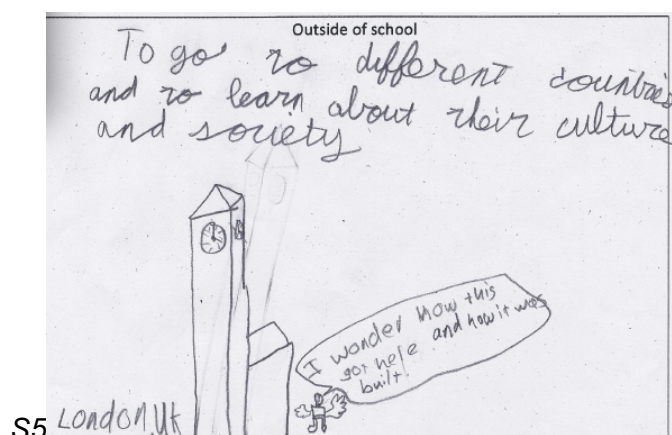 Outside of school
To go to different countries
and to learn about their culture
and society
I wonder how this
got here and how it was
built!
S5 London, Uk